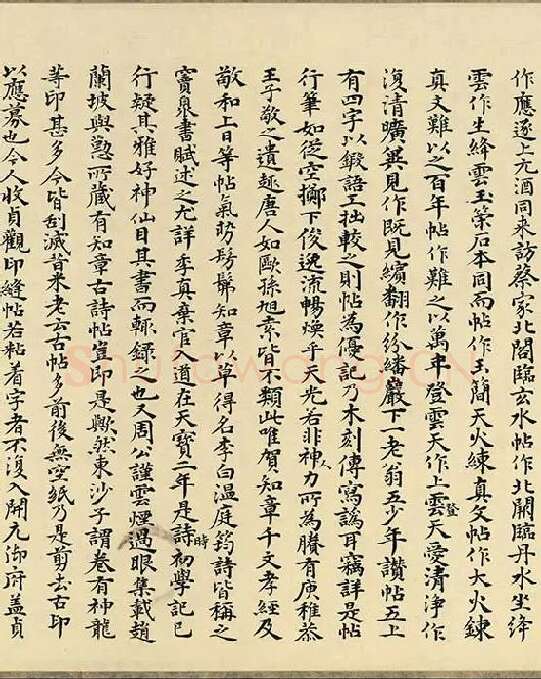 作應逐上元酒同来訪蔡家北閣臨玄水帖作北闕臨丹水坐絳
雲作生絳雲玉策石本同而帖作玉簡天火練真文帖作大火鍊
真文難以之百年帖作難之以萬年登雲天作上登雲天愛清淨作
復清曠巽見作既見繽翻作紛繙巖下一老翁五少年讚帖五上
有四字以鍜語工拙較之則帖為優記乃木刻傳寫譌耳竊詳是帖
行筆如從空擲下俊逸流暢煥乎天光若非神人力所為賸有庾稚恭
王子敬之遺趣唐人如歐孫旭素皆不類此唯賀知章千文孝經及
敬和上日等帖氣勢髣髴知章以草得名李白温庭筠詩皆稱之
竇臮書賦述之尤詳季真棄官入道在天寶二年是詩時初學記已
行疑其雅好神仙目其書而輒錄之也又周公謹雲煙過眼集載趙
蘭坡與懃所藏有知章古詩帖豈即是歟然東沙子謂卷有神龍
等印甚多今皆刮滅昔米老云古帖多前後無空紙乃是剪去古印
以應募也今人收貞觀印縫帖若粘着字者不復入開元御府蓋貞